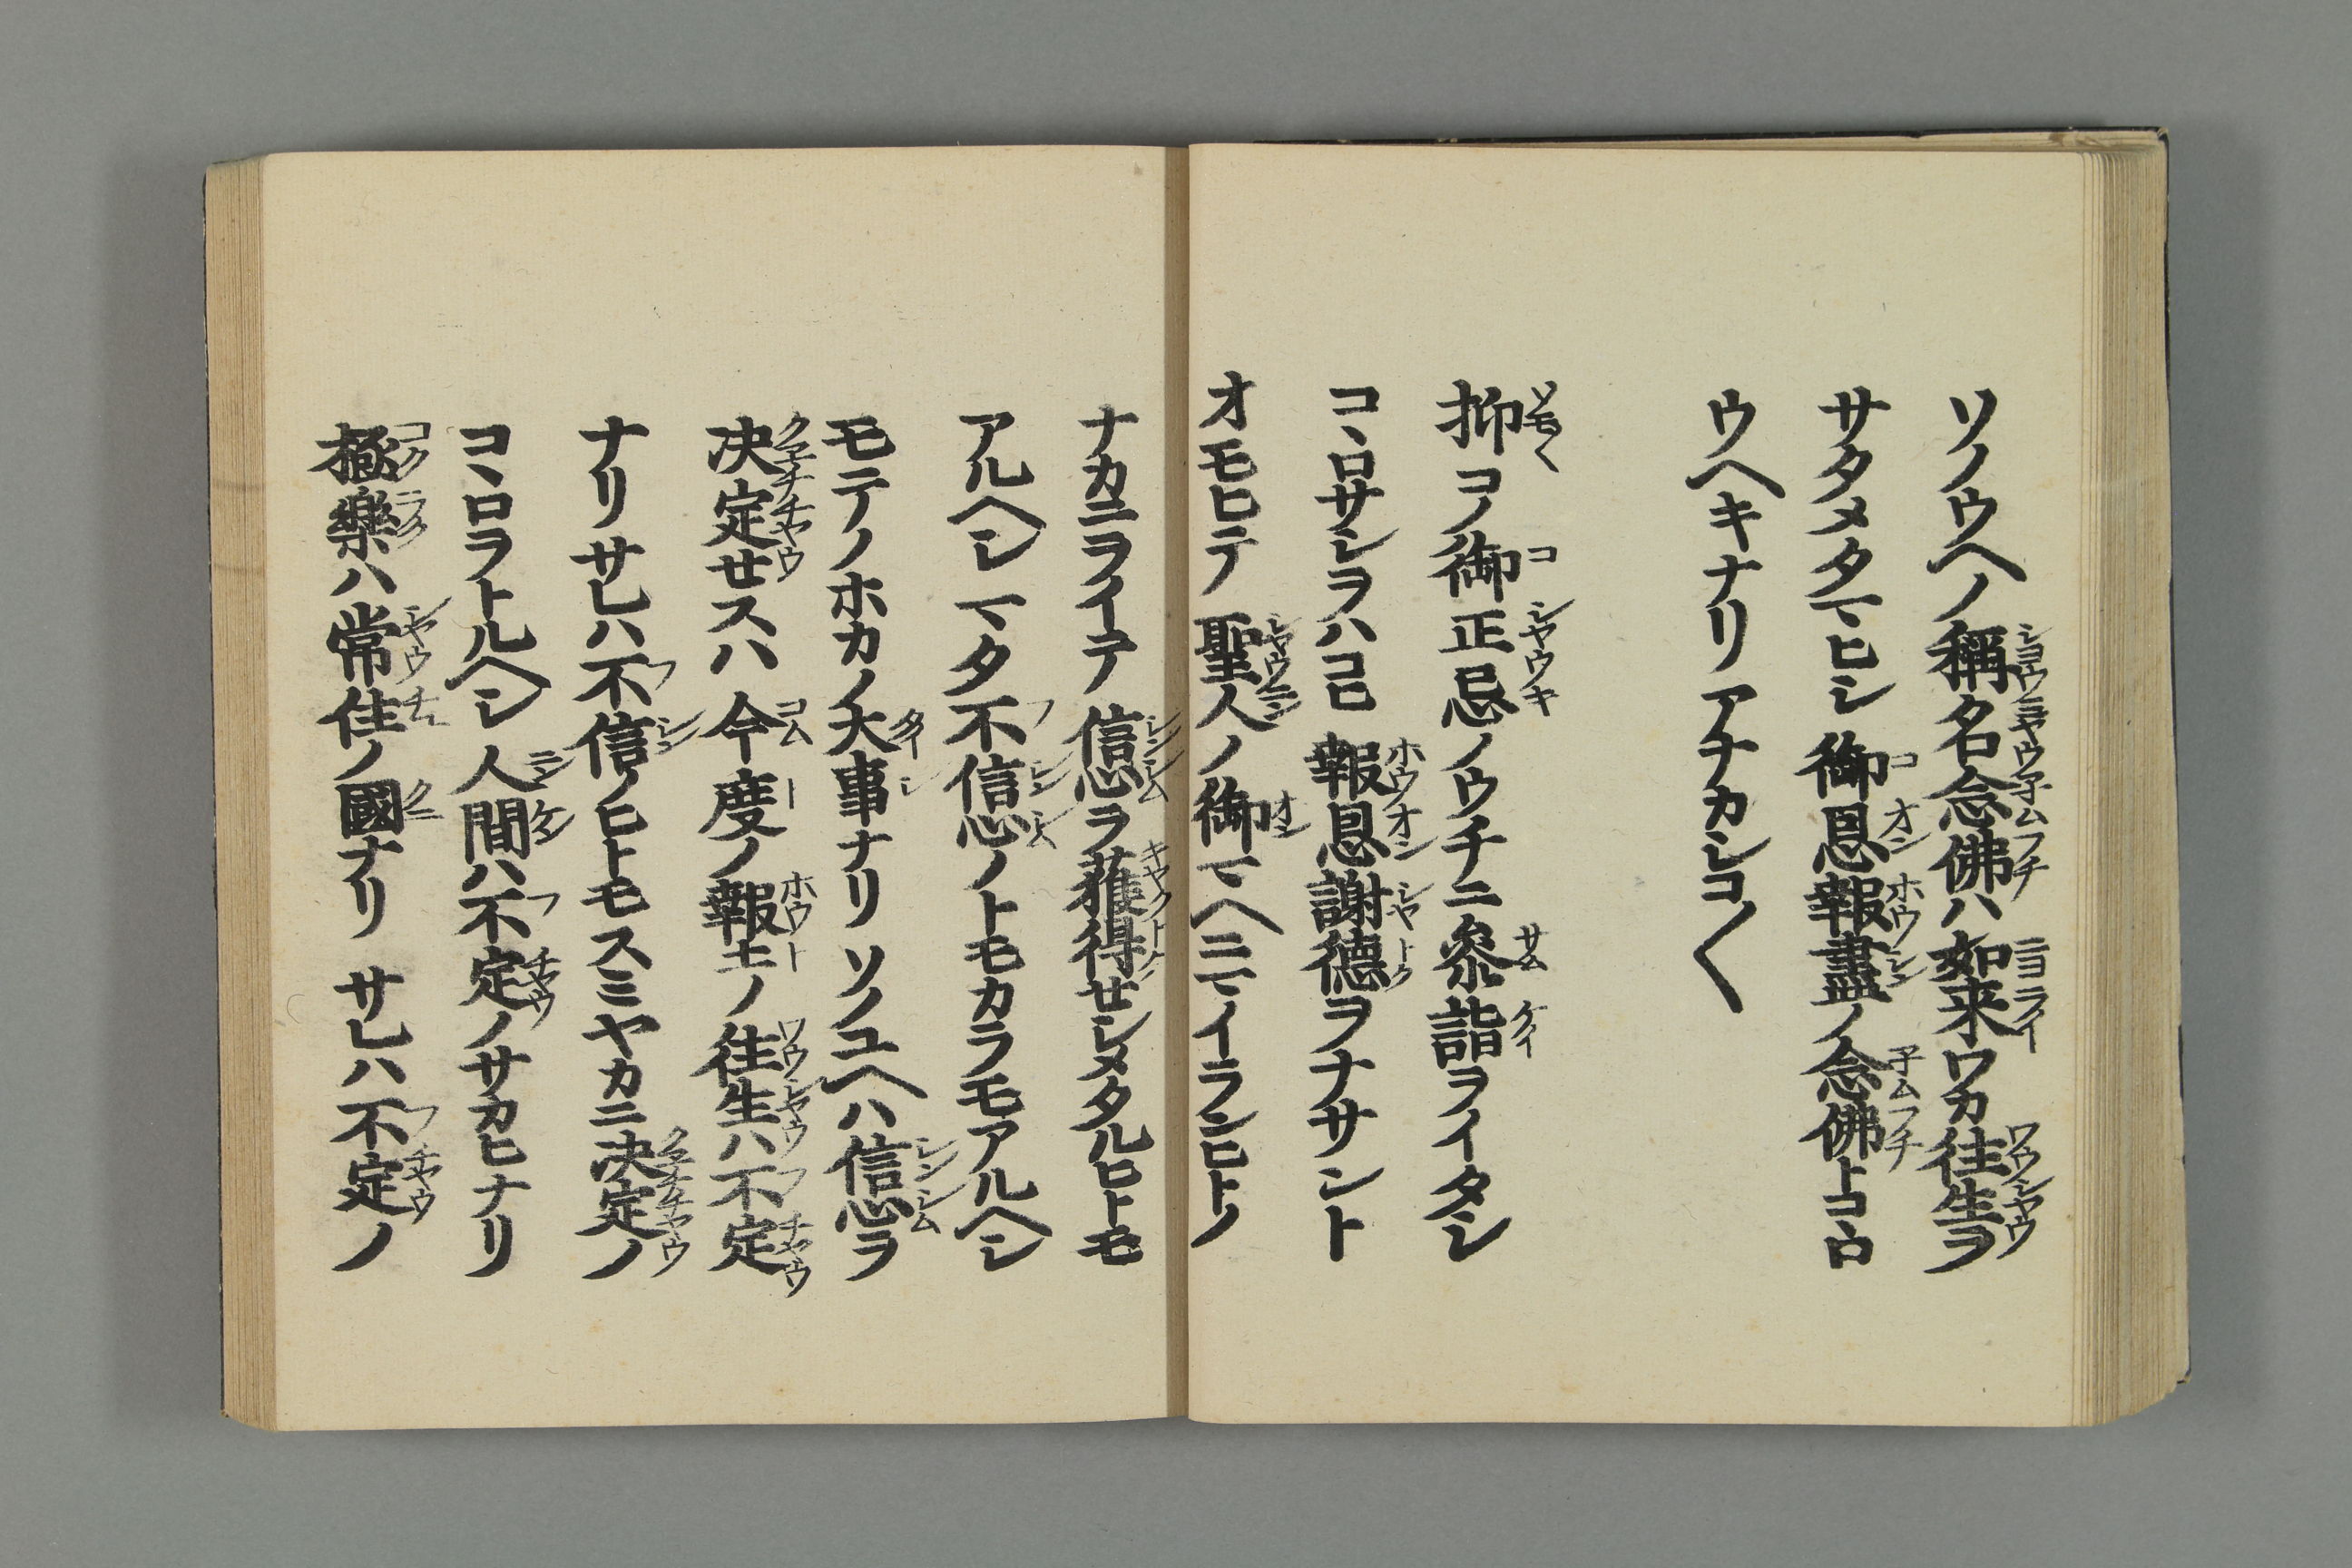 ソノウヘノ稱名念佛ハ如来ワカ往生ヲ
サタメタマヒシ御恩報盡ノ念佛トコヽロ
ウヘキナリアナカシコ〱
抑コノ御正忌ノウチニ参詣ヲイタシ
コヽロサシヲハコヒ報恩謝徳ヲナサント
オモヒテ聖人ノ御マヘニマイランヒトノ
ナカニヲイテ信心ヲ獲得セシメタルヒトモ
アルヘシマタ不信心ノトモカラモアルヘシ
モテノホカノ大事ナリソノユヘハ信心ヲ
决定セスハ今度ノ報土ノ往生ハ不定
ナリサレハ不信ノヒトモスミヤカニ决定ノ
コヽロヲトルヘシ人間ハ不定ノサカヒナリ
極樂ハ常住ノ國ナリサレハ不定ノ